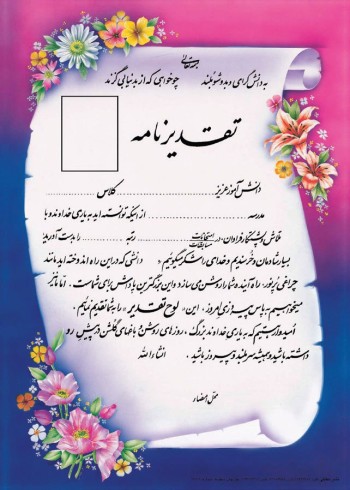 بسمه تعالی
به دانش گرای و بدو شو بلند چو خواهی که از بد نیابی گزند
تقدیرنامه
دانش آموز عزیز .......... کلاس ..........
مدرسه .......... از اینکه توانسته اید به یاری خداوند و با
تلاش و پشتکار فراوان، در امتحانات مسابقات .......... رتبه .......... را بدست آورید
بسیار شادمان و خرسندیم و خدای را شکر میگوئیم. دانشی که در این راه اندوخته اید مانند
چراغی پر نور، راه آینده شما را روشن می سازد و این بزرگترین پاداش برای شماست. اما ما نیز
میخواهیم به پاس پیروزی امروز، این «لوح تقدیر» را به شما تقدیم نمائیم.
امید و آرزستیم که به یاری خداوند بزرگ، روزهای روشن و باغهای گلشن در پیش رو
داشته باشید و همیشه سربلند و پیروز باشید. انشاءالله
محل امضاء: